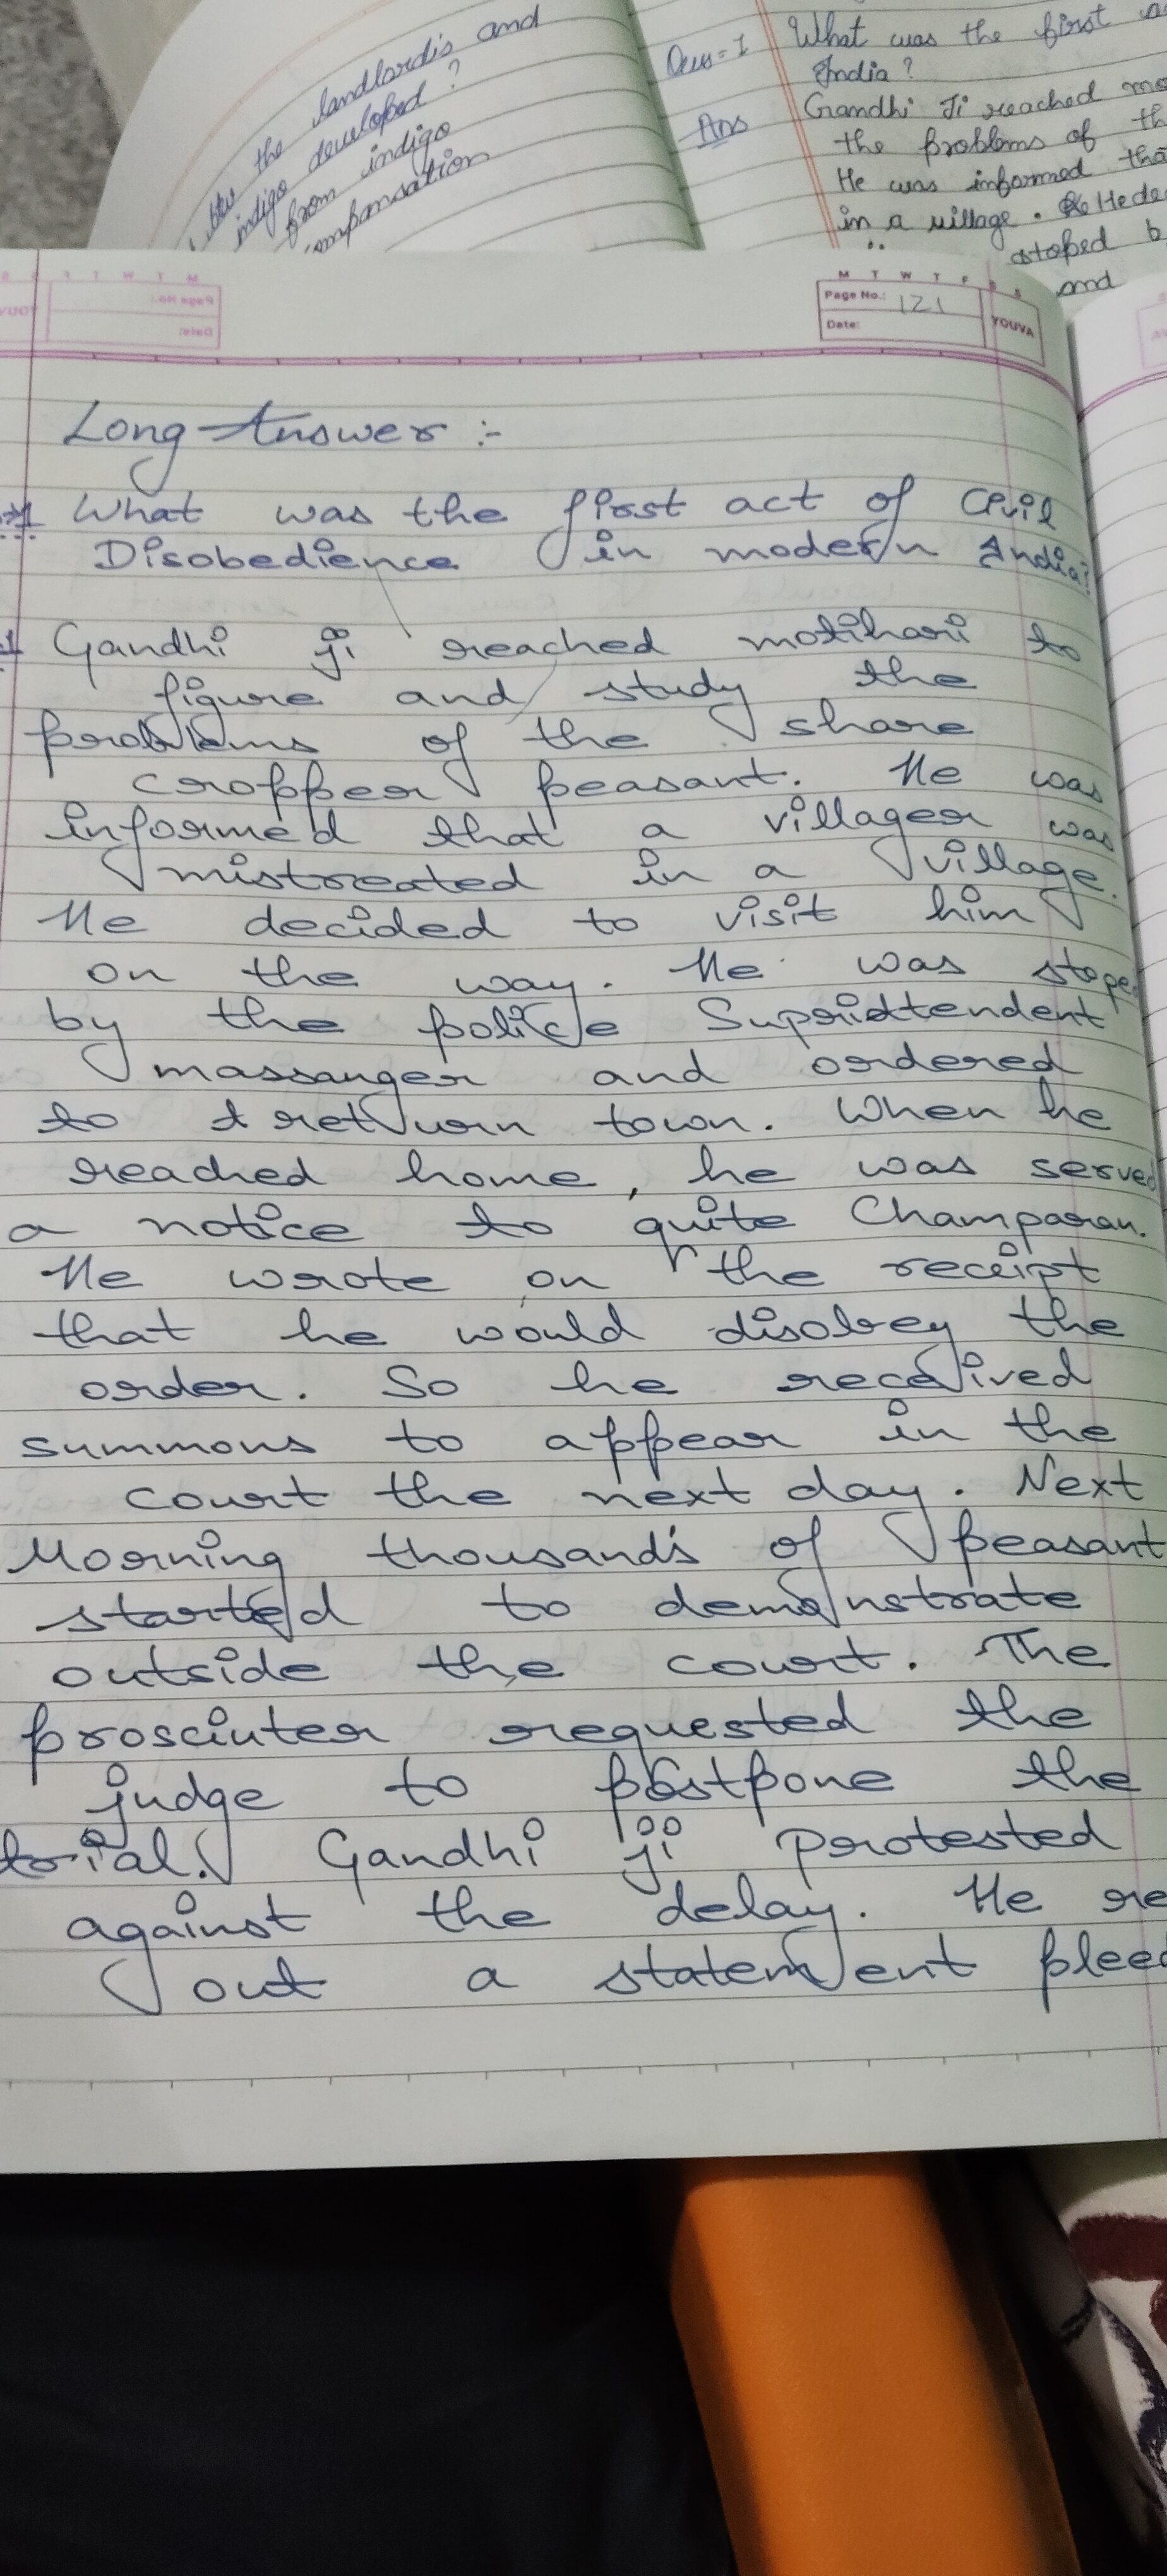 the landlords and
indigo developed ?
from indigo
Ques=1 What was the first
India ?
Ans Gandhi Ji reached
the problems of
He was informed
in a village . He
stoped
and
M T W T F S S
Page No.: 121
Date:
YOUVA
Long Answer :-
What was the first act of Civil
Disobedience in modern India?
Gandhi ji reached motihari to
figure and study the
problems of the share
cropper peasant. He was
informed that a villager was
mistreated in a village.
He decided to visit him
on the way. He was stope
by the police Suprittendent
massanger and ordered
to return town. When he
reached home, he was served
a notice to quite Champaran.
He wrote on the receipt
that he would disobey the
order. So he received
summons to appear in the
court the next day. Next
Morning thousands of peasant
started to demonstrate
outside the court. The
prosciuter requested the
judge to postpone the
trial. Gandhi ji protested
against the delay. He re
out a statement pleed